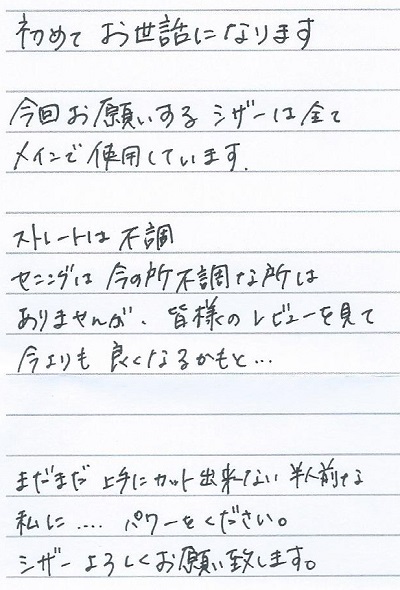 初めて お世話になります
今回お願いする シザーは全て
メインで使用しています.
ストレートは 不調
セニングは 今の所不調な所は
ありませんが、皆様のレビューを見て
今よりも 良くなるかもと...
まだまだ 上手にカット出来ない 半人前な
私に .... パワーをください。
シザー よろしくお願い致します。